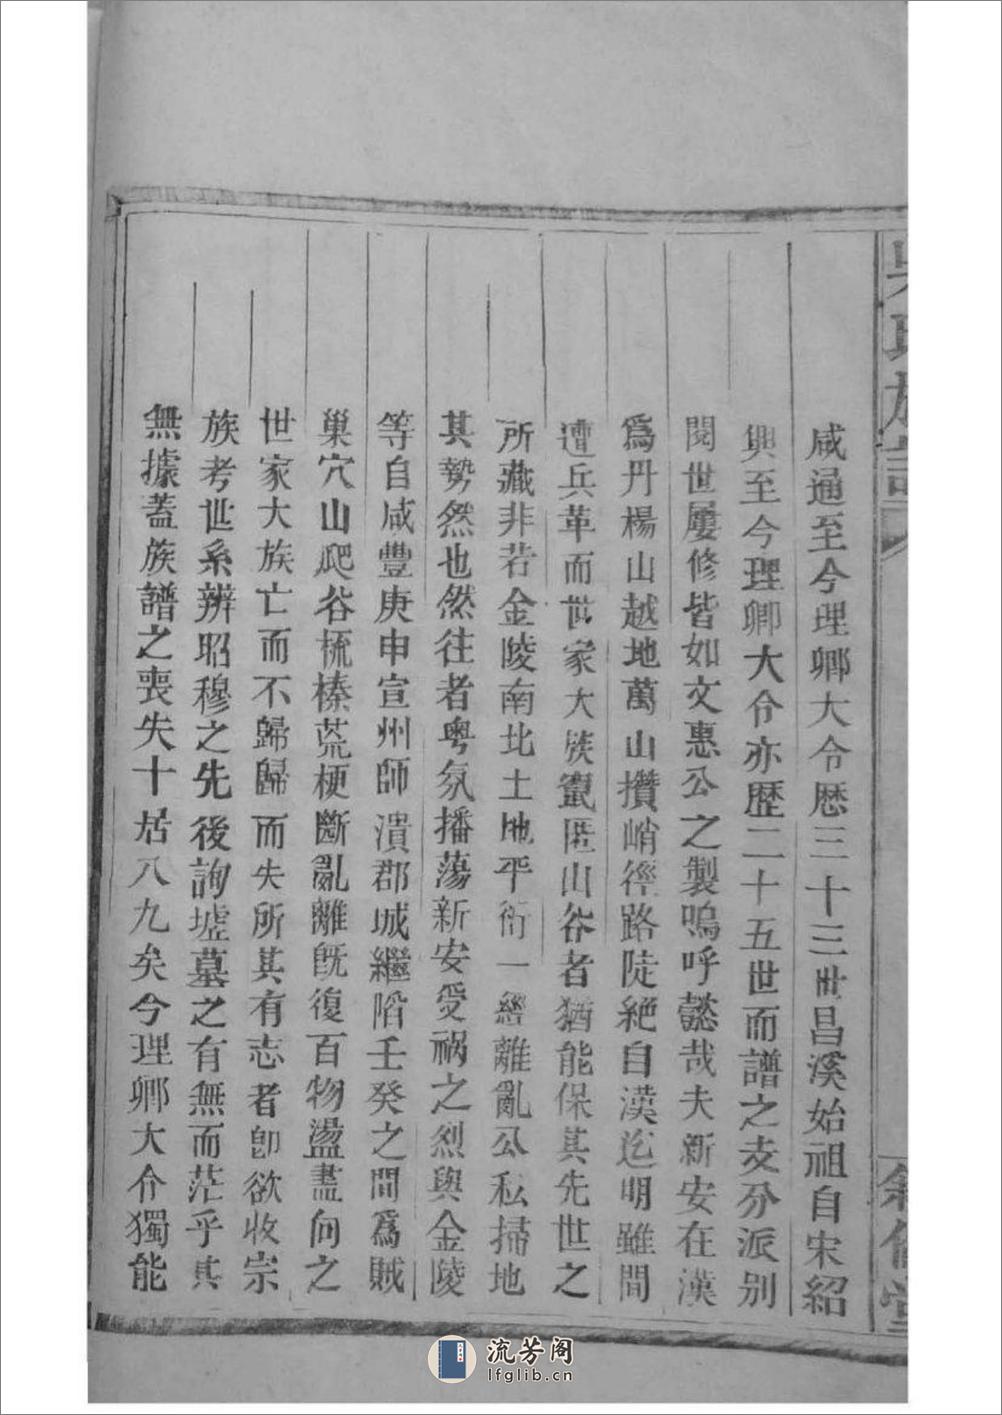 咸通至今理卿大令歷三十三世昌溪始祖自宋紹
興至今理卿大令亦歷二十五世而譜之支分派別
閱世屢修皆如文惠公之製嗚呼懿哉夫新安在漢
爲丹楊山越地萬山攢峭徑路陡絶自漢迄明雖間
遭兵革而世家大族竄匿山谷者猶能保其先世之
所藏非若金陵南北土地平衍一經離亂公私掃地
其勢然也然往者粤氛播蕩新安受禍之烈與金陵
等自咸豐庚申宣州師潰郡城繼陷壬癸之間爲賊
巢穴山爬谷梳榛荒梗斷亂離旣復百物盪盡向之
世家大族亡而不歸歸而失所其有志者卽欲收宗
族考世系辨昭穆之先後詢墟墓之有無而茫乎其
無據蓋族譜之喪失十居八九矣今理卿大令獨能
吳氏族譜
敘倫堂
流芳阁
lfglib.cn